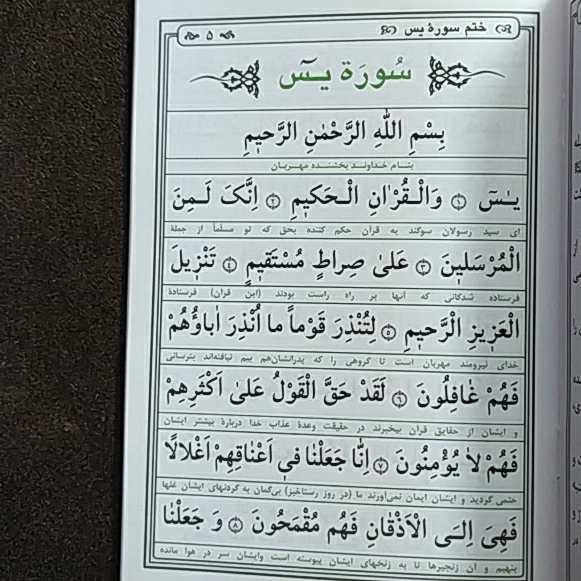 ختم سورهٔ یس
۵
سُورَة یـٓس
بِسْمِ اللّٰهِ الرَّحْمٰنِ الرَّحیٖمِ
بنـام خداونـد بخشنـده مهـربـان
یـٰسٓ ۝۱ وَالْـقُرْاٰنِ الْـحَكیٖمِ ۝۲ اِنَّكَ لَـمِنَ
ای سید رسولان سوگند به قرآن حکم کننده بحق که تو مسلماً از جملهٔ
الْمُرْسَلیٖنَ ۝۳ عَلیٰ صِراطٍ مُسْتَقیٖمٍ ۝۴ تَنْزیٖلَ
فرستاده شدگانی که آنها بر راه راست بودند (این قرآن) فرستادهٔ
الْعَزیٖزِ الرَّحیٖمِ ۝۵ لِتُنْذِرَ قَوْماً ما اُنْذِرَ اٰباؤُهُمْ
خدای نیرومند مهربان است تا گروهی را که پدرانشان‌هم بیم نیافته‌اند بترسانی
فَهُمْ غٰافِلُونَ ۝۶ لَقَدْ حَقَّ الْقَوْلُ عَلیٰ اَكْثَرِهِمْ
و ایشان از حقایق قرآن بیخبرند در حقیقت وعدهٔ عذاب خدا دربارهٔ بیشتر ایشان
فَهُمْ لاٰ یُؤْمِنُونَ ۝۷ اِنّٰا جَعَلْنٰا فیٖ اَعْنٰاقِهِمْ اَغْلالًا
حتمی گردید و ایشان ایمان نمی‌آورند ما (در روز رستاخیز) بی‌گمان به گردنهای ایشان غلها
فَهِیَ اِلَـی الْاَذْقٰانِ فَهُمْ مُقْمَحُونَ ۝۸ وَ جَعَلْنٰا
بنهیم و آن زنجیرها تا به زنخهای ایشان پیوسته است وایشان سر در هوا مانده